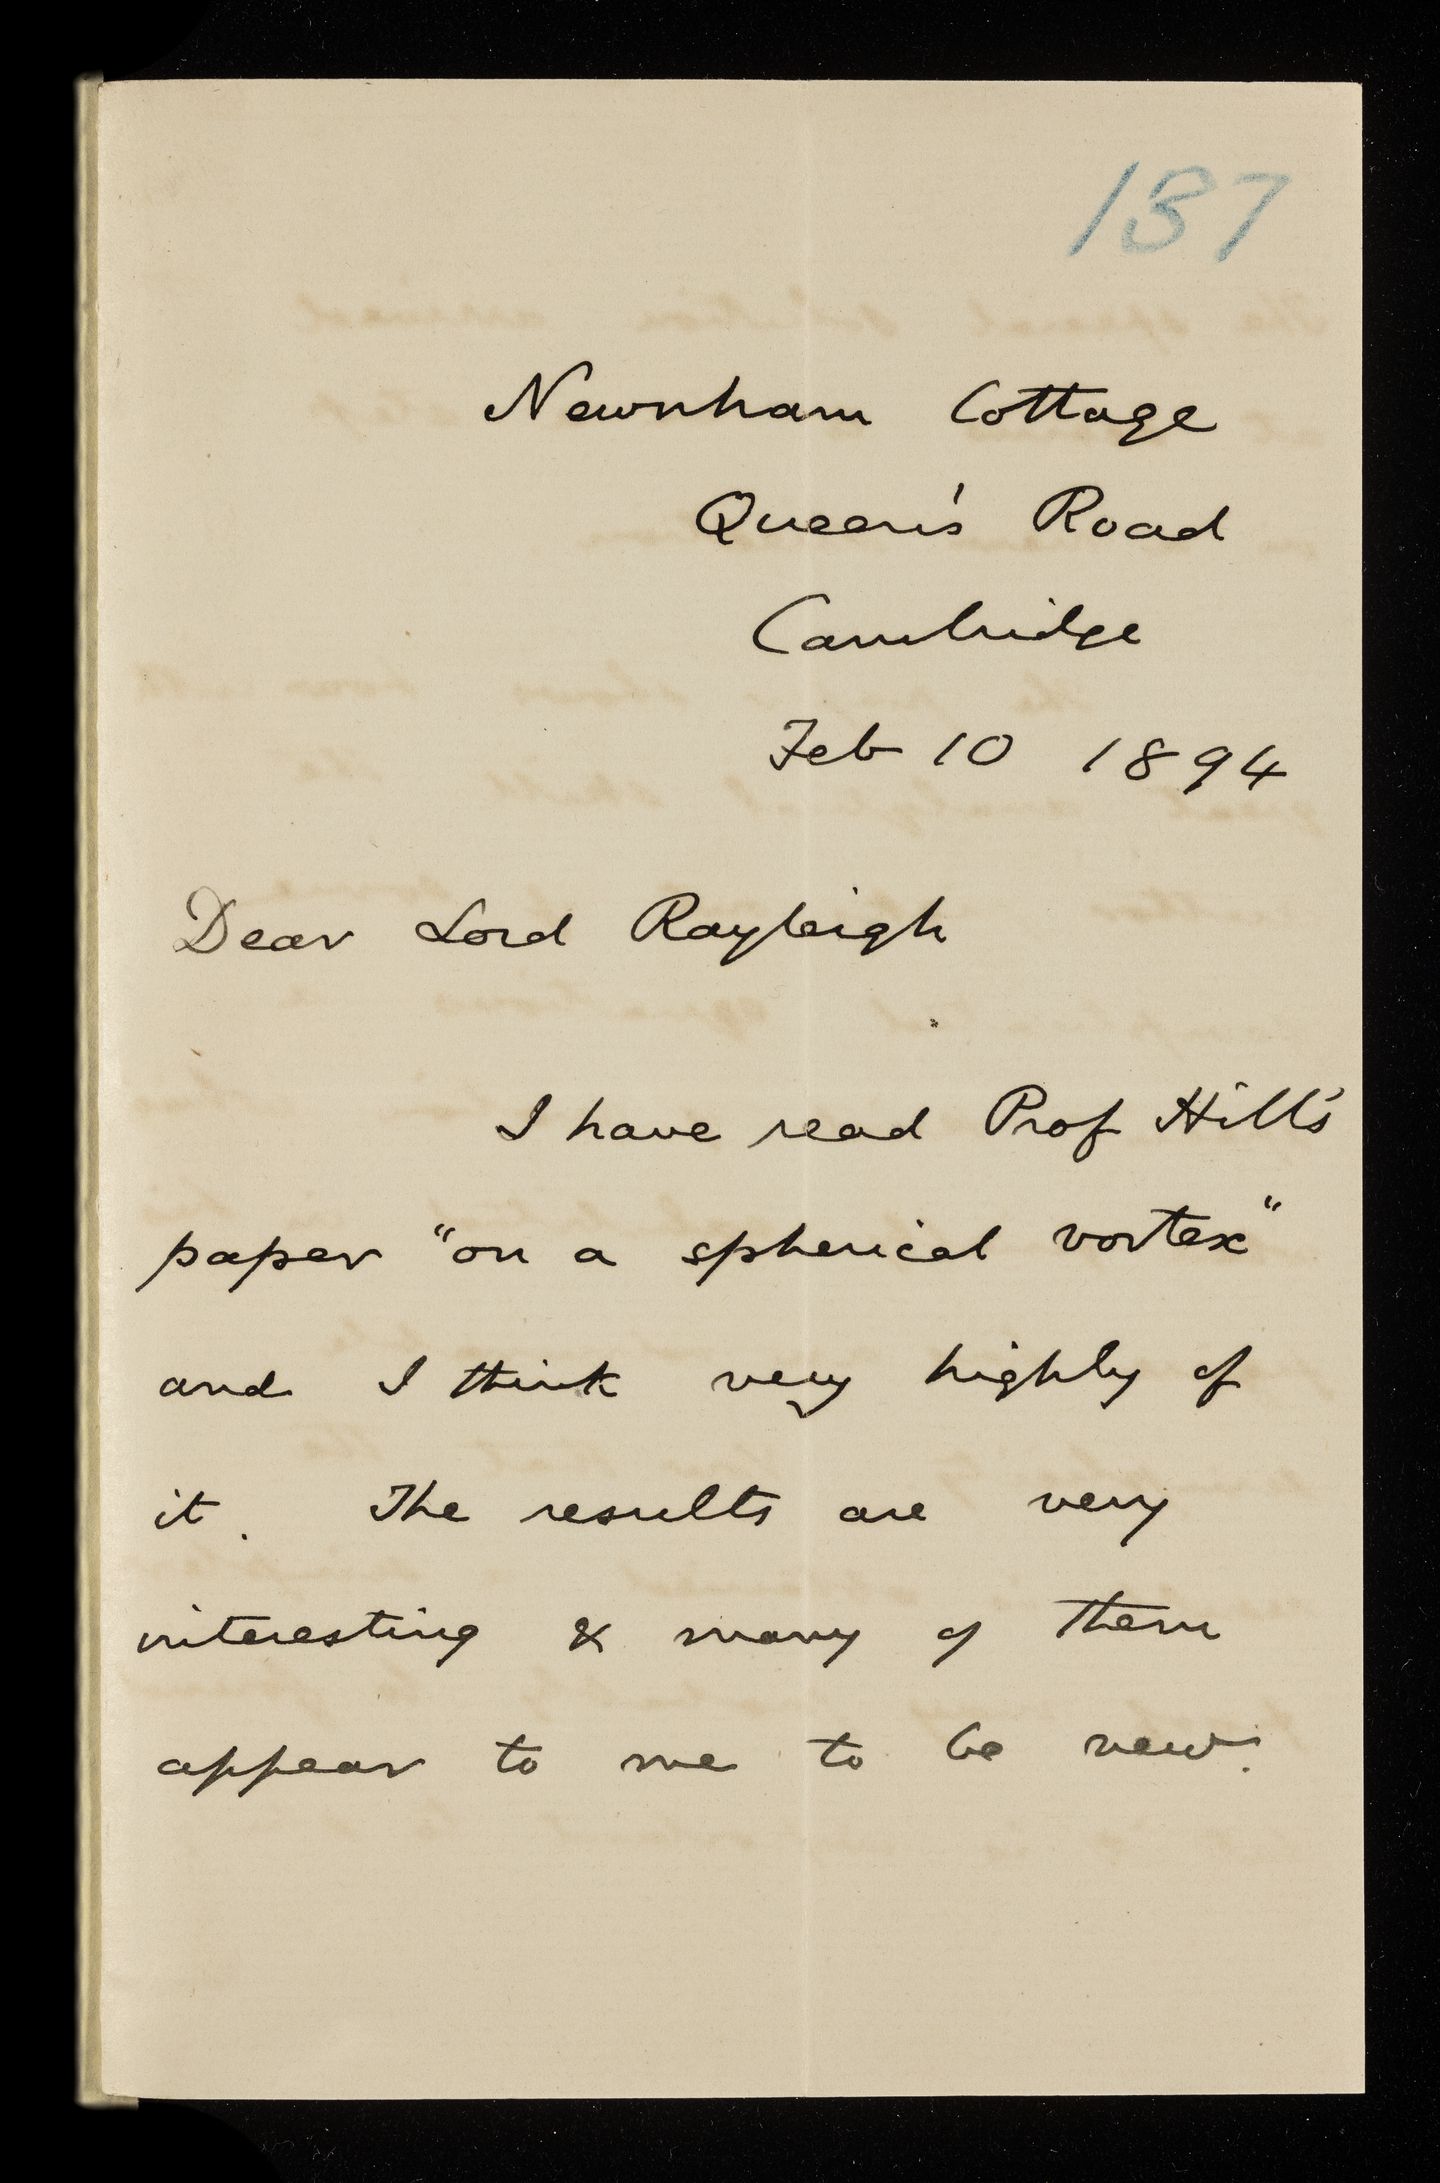 137
Newnham Cottage
Queen's Road
Cambridge
Feb 10 1894
Dear Lord Rayleigh
I have read Prof Hill's
paper "on a spherical vortex"
and I think very highly of
it. The results are very
interesting & many of them
appear to me to be new.